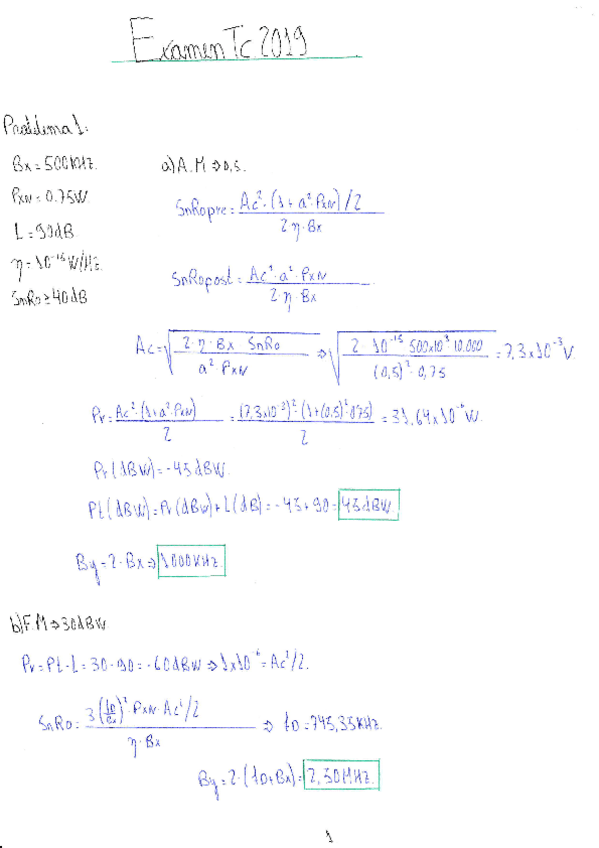 Examen Tc 2019
Problema 1:
Bx = 500 kHz.
a) A.M ⇒ 0,5.
Pxn = 0.75W.
SnRopre = Ac²·(1 + a²·Pxn)/2 / 2·η·Bx
L = 90 dB
η = 10⁻¹⁵ W/Hz
SnRopost = Ac²·a²·Pxn / 2·η·Bx
SnRo ≥ 40 dB
Ac = √(2·η·Bx SnRo / a²·Pxn) ⇒ √(2·10⁻¹⁵ 500x10³ 10.000 / (0,5)²·0,75) = 7,3x10⁻³ V.
Pr = Ac²·(1+a²·Pxn) / 2 = (7,3x10⁻³)²·(1+(0,5)²·0,75) / 2 = 31,64x10⁻⁶ W.
Pr(dBW) = -45 dBW.
Pt(dBW) = Pr(dBW) + L(dB) = -45 + 90 = 45 dBW.
By = 2·Bx ⇒ 1000 kHz.
b) F.M ⇒ 30 dBW
Pr = Pt - L = 30 - 90 = -60 dBW ⇒ 1x10⁻⁶ = Ac²/2.
SnRo = 3( )²·Pxn·Ac²/2 / η·Bx ⇒ fD = 745,35 kHz.
By = 2·(fD+Bx) = 2,50 MHz.
1